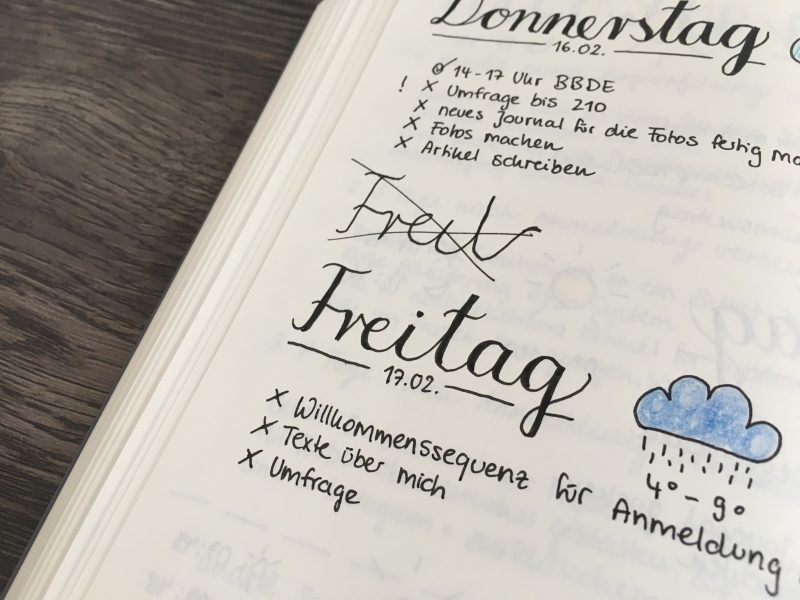 Donnerstag
16.02.
14-17 Uhr BBDE
! x Umfrage bis 210
x neues Journal für die Fotos fertig
x Fotos machen
x Artikel schreiben
Freit
Freitag
17.02.
x Willkommenssequenz für Anmeldung
x Texte über mich
x Umfrage
4° - 9°